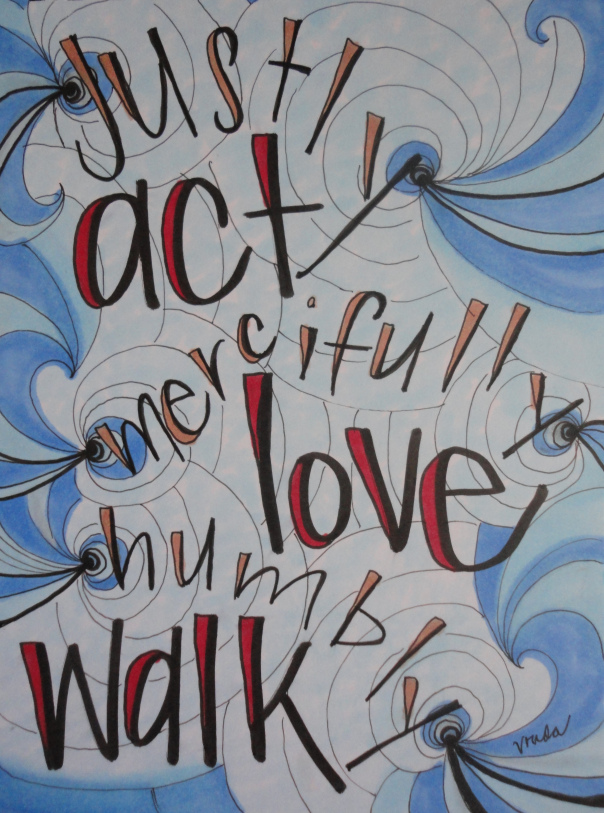 justly
act
mercifully
love
humbly
walk
vruda